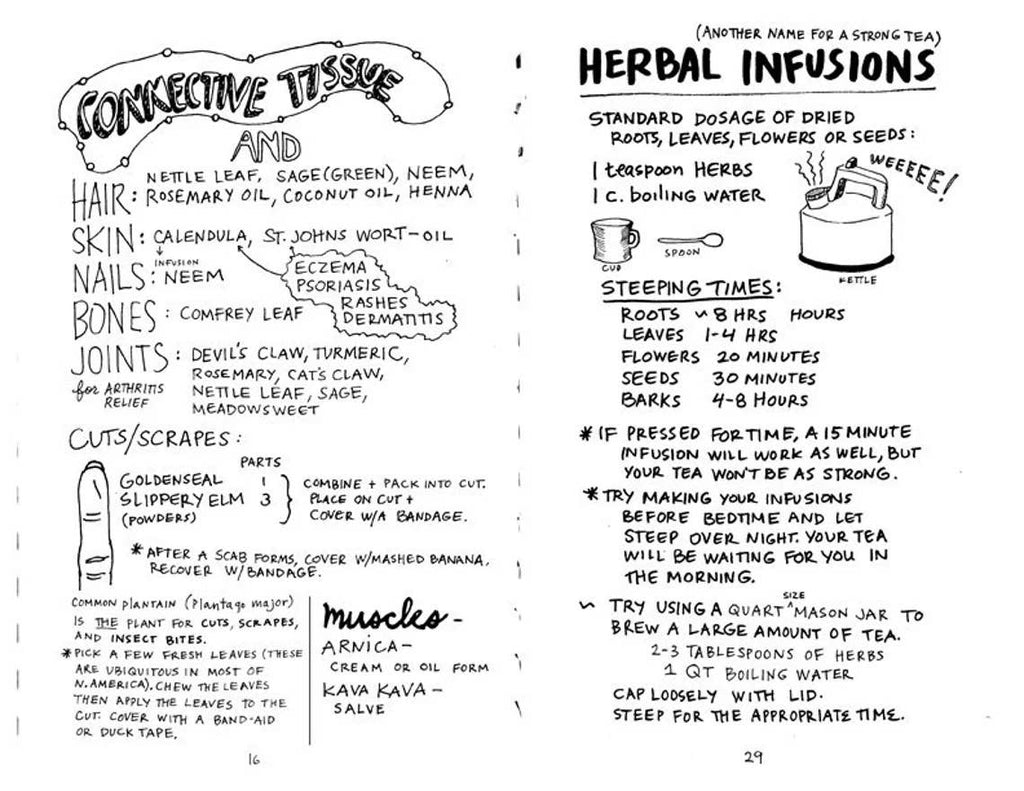 CONNECTIVE TISSUE
AND
HAIR: NETTLE LEAF, SAGE(GREEN), NEEM,
ROSEMARY OIL, COCONUT OIL, HENNA
SKIN: CALENDULA, ST. JOHNS WORT-OIL
INFUSION
ECZEMA
PSORIASIS
RASHES
DERMATITIS
NAILS: NEEM
BONES: COMFREY LEAF
JOINTS: DEVIL'S CLAW, TURMERIC,
ROSEMARY, CAT'S CLAW,
NETTLE LEAF, SAGE,
MEADOWSWEET
for ARTHRITIS
RELIEF
CUTS/SCRAPES:
PARTS
GOLDENSEAL 1
SLIPPERY ELM 3
(POWDERS)
COMBINE + PACK INTO CUT.
PLACE ON CUT +
COVER W/A BANDAGE.
*AFTER A SCAB FORMS, COVER W/MASHED BANANA,
RECOVER W/BANDAGE.
COMMON PLANTAIN (Plantago major)
IS THE PLANT FOR CUTS, SCRAPES,
AND INSECT BITES.
*PICK A FEW FRESH LEAVES (THESE
ARE UBIQUITOUS IN MOST OF
N.AMERICA). CHEW THE LEAVES
THEN APPLY THE LEAVES TO THE
CUT. COVER WITH A BAND-AID
OR DUCK TAPE.
Muscles-
ARNICA-
CREAM OR OIL FORM
KAVA KAVA-
SALVE
16
(ANOTHER NAME FOR A STRONG TEA)
HERBAL INFUSIONS
STANDARD DOSAGE OF DRIED
ROOTS, LEAVES, FLOWERS OR SEEDS:
1 teaspoon HERBS
1 c. boiling WATER
WEEEEE!
CUP
SPOON
KETTLE
STEEPING TIMES:
ROOTS ~8 HRS HOURS
LEAVES 1-4 HRS
FLOWERS 20 MINUTES
SEEDS 30 MINUTES
BARKS 4-8 HOURS
*IF PRESSED FOR TIME, A 15 MINUTE
INFUSION WILL WORK AS WELL, BUT
YOUR TEA WON'T BE AS STRONG.
*TRY MAKING YOUR INFUSIONS
BEFORE BEDTIME AND LET
STEEP OVER NIGHT. YOUR TEA
WILL BE WAITING FOR YOU IN
THE MORNING.
~ TRY USING A QUART ^SIZE MASON JAR TO
BREW A LARGE AMOUNT OF TEA.
2-3 TABLESPOONS OF HERBS
1 QT BOILING WATER
CAP LOOSELY WITH LID.
STEEP FOR THE APPROPRIATE TIME.
29